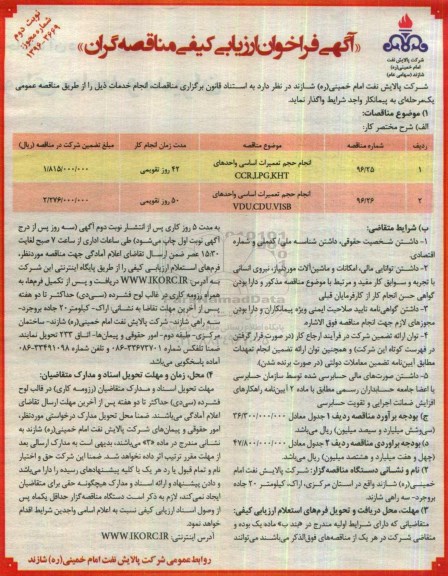 نوبت دوم
شماره مجوز:
۱۳۹۶.۳۶۶۹
«آگهی فراخوان ارزیابی کیفی مناقصه گران»
شرکت پالایش نفت
امام خمینی(ره)
شازند (سهامی عام)
شرکت پالایش نفت امام خمینی(ره) شازند در نظر دارد به استناد قانون برگزاری مناقصات، انجام خدمات ذیل را از طریق مناقصه عمومی
یک‌مرحله‌ای به پیمانکار واجد شرایط واگذار نماید.
۱) موضوع مناقصات:
الف) شرح مختصر کار:
ردیف شماره مناقصه موضوع مناقصه مدت زمان انجام کار مبلغ تضمین شرکت در مناقصه (ریال)
۱ ۹۶/۲۵ انجام حجم تعمیرات اساسی واحدهای CCR,LPG,KHT ۴۲ روز تقویمی ۱/۸۱۵/۰۰۰/۰۰۰
۲ ۹۶/۲۶ انجام حجم تعمیرات اساسی واحدهای VDU,CDU,VISB ۵۰ روز تقویمی ۲/۲۷۶/۰۰۰/۰۰۰
ب) شرایط متقاضی:
۱- داشتن شخصیت حقوقی، داشتن شناسه ملی/ کدملی و شماره
اقتصادی.
۲- داشتن توانایی مالی، امکانات و ماشین‌آلات موردنیاز، نیروی انسانی
با تجربه و سوابق کار مفید و مرتبط با موضوع مناقصه مذکور و دارا بودن
گواهی حسن انجام کار از کارفرمایان قبلی
۳- داشتن گواهی‌نامه تایید صلاحیت ایمنی ویژه پیمانکاران و دارا بودن
مجوزهای لازم جهت انجام مناقصه فوق الاشاره.
۴- توان ارائه تضمین شرکت در فرآیند ارجاع کار (در صورت قرار گرفتن
در فهرست کوتاه این شرکت) و همچنین توان ارائه تضمین انجام تعهدات
مطابق آیین‌نامه تضمین معاملات دولتی (در صورت برنده شدن).
۵- داشتن صورت‌های مالی حسابرسی شده توسط سازمان حسابرسی
یا اعضا جامعه حسابداران رسمی مطابق با ماده ۲ آیین‌نامه راهکارهای
افزایش ضمانت اجرایی و تقویت حسابرسی
ج) بودجه برآورد مناقصه ردیف ۱ جدول معادل ۳۶/۳۰۰/۰۰۰/۰۰۰
(سی‌وشش میلیارد و سیصد میلیون) ریال می‌باشد.
د) بودجه برآوردی مناقصه ردیف ۲ جدول معادل ۴۷/۸۰۰/۰۰۰/۰۰۰
(چهل و هفت میلیارد و هشتصد میلیون) ریال می‌باشد.
۲) نام و نشانی دستگاه مناقصه‌گزار: شرکت پالایش نفت امام
خمینی(ره) شازند واقع در استان مرکزی، اراک، کیلومتر ۲۰ جاده
بروجرد- سه راهی شازند.
۳) مهلت، محل دریافت و تحویل فرم‌های استعلام ارزیابی کیفی:
متقاضیانی که دارای شرایط اولیه مندرج در «بند ب» ماده یک بوده و
متقاضی شرکت در هر یک از مناقصه‌های فوق‌الذکر می‌باشند می‌توانند
به مدت ۵ روز کاری پس از انتشار نوبت دوم آگهی (سه روز پس از درج
آگهی نوبت اول چاپ می‌شود) طی ساعات اداری از ساعت ۷ صبح لغایت
۱۵:۳۰ عصر ضمن ارسال تقاضای اعلام آمادگی جهت مناقصه موردنظر،
فرم‌های استعلام ارزیابی کیفی را از طریق پایگاه اینترنتی این شرکت
به آدرس WWW.IKORC.IR دریافت و پس از تکمیل فرم‌ها، به
همراه رزومه کاری در قالب لوح فشرده (سی‌دی) حداکثر تا دو هفته
پس از آخرین مهلت تقاضا به نشانی: اراک- کیلومتر ۲۰ جاده بروجرد-
سه راهی شازند- شرکت پالایش نفت امام خمینی(ره) شازند- ساختمان
مرکزی- طبقه دوم- امور حقوقی و پیمان‌ها- اتاق ۲۳۳ تحویل نمایند.
ضمنا تلفکس شماره ۳۳۶۷۳۷۰۱-۰۸۶ و تلفن شماره ۳۳۴۹۱۰۹۸-۰۸۶
آماده پاسخگویی می‌باشد.
۴) محل، زمان و مهلت تحویل اسناد و مدارک متقاضیان:
مهلت تحویل اسناد و مدارک متقاضیان (رزومه کاری) در قالب لوح
فشرده (سی‌دی) حداکثر تا دو هفته پس از آخرین مهلت ارسال تقاضای
اعلام آمادگی می‌باشند. ضمنا محل تحویل مدارک درخواستی موردنظر،
امور حقوقی و پیمان‌های شرکت پالایش نفت امام خمینی(ره) شازند به
نشانی مندرج در ماده «۳» می‌باشند، بدیهی است به مدارک ارسالی بعد
از مهلت مقرر ترتیب اثر داده نخواهد شد. ضمنا این شرکت حق و اختیار
تام و تمام قبول یا رد هر یک یا کلیه پیشنهادهای رسیده را دارا می‌باشد
و دادن پیشنهاد و ارائه اسناد و مدارک هیچگونه حقی برای متقاضیان
ایجاد نمی‌کند، لازم به ذکر است دستگاه مناقصه‌گزار حداقل یکماه پس
از وصول اسناد ارزیابی کیفی نسبت به اعلام اسامی واجدین شرایط اقدام
خواهد نمود.
آدرس اینترنتی: WWW.IKORC.IR
روابط عمومی شرکت پالایش نفت امام خمینی(ره) شازند